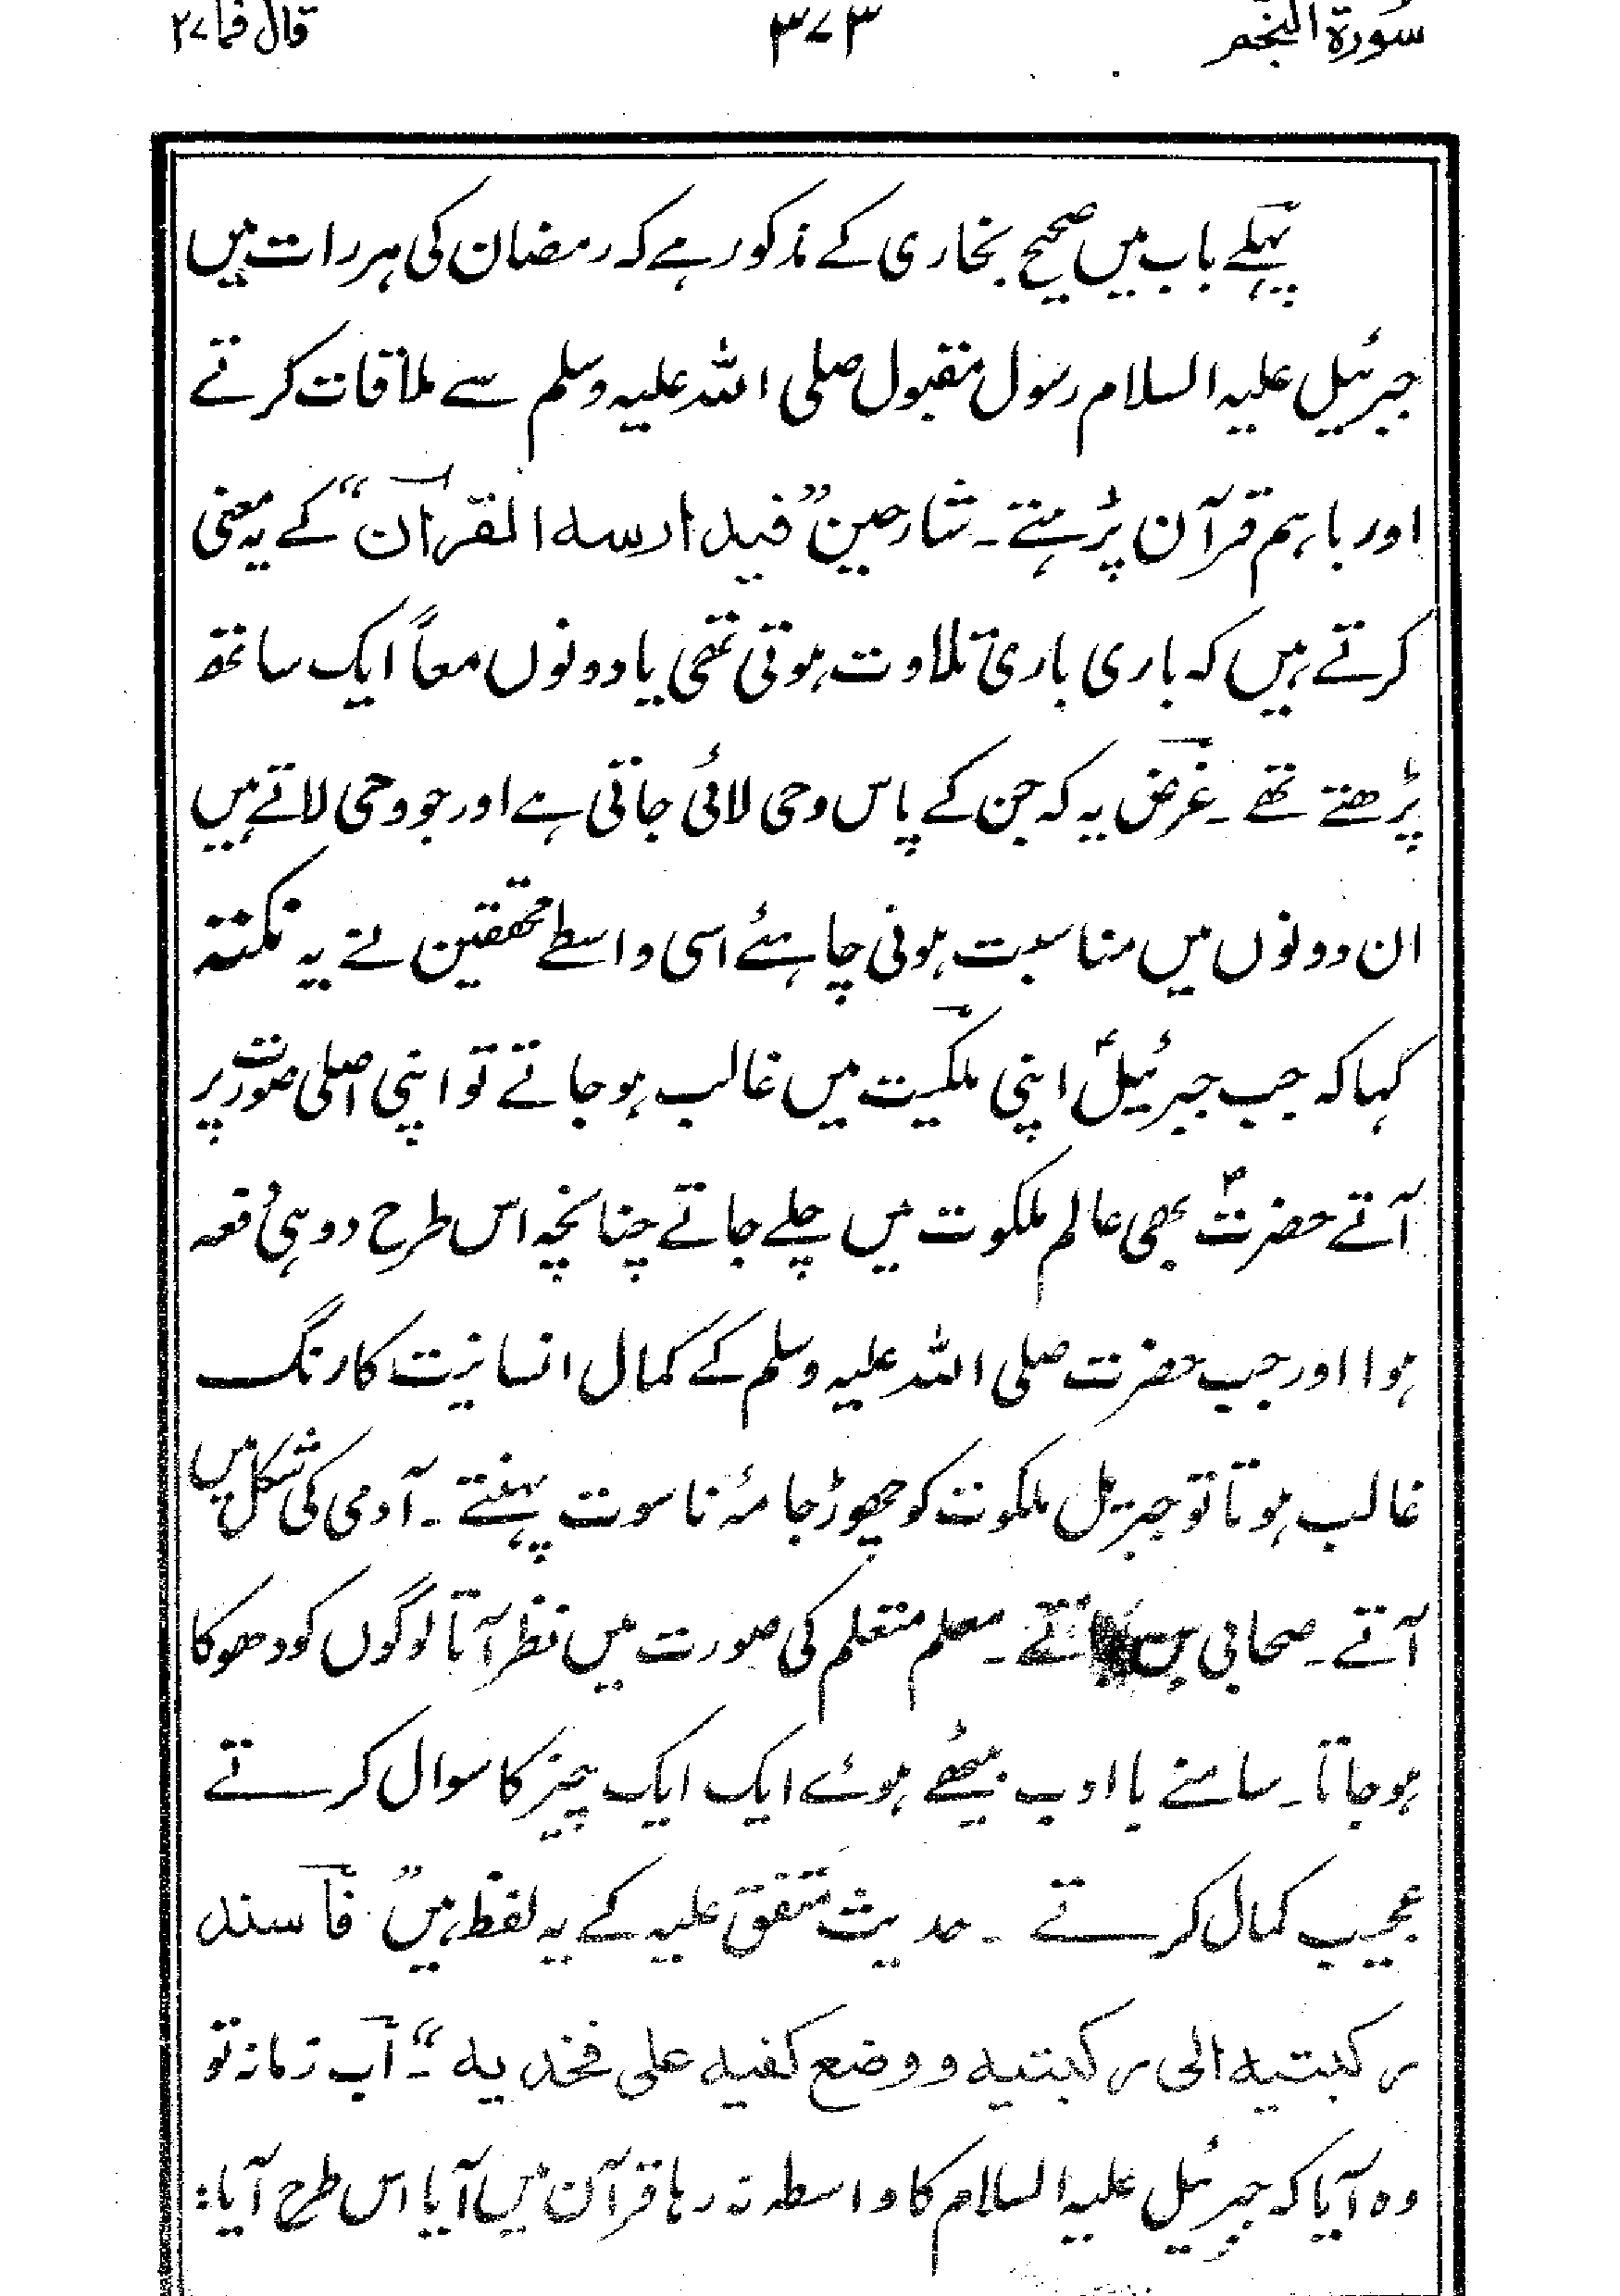 سورۃ النجم ۳۷۳ قال فما ۲۷
پہلے باب میں صحیح بخاری کے مذکور ہے کہ رمضان کی ہر رات میں
جبرئیل علیہ السلام رسول مقبول صلی اللہ علیہ وسلم سے ملاقات کرتے
اور باہم قرآن پڑہتے ۔ شارحین ”فیدارسہ القرآن“ کے یہ معنی
کرتے ہیں کہ باری باری تلاوت ہوتی تھی یا دونوں معاً ایک ساتھ
پڑھتے تھے ۔ غرض یہ کہ جن کے پاس وحی لائی جاتی ہے اور جو وحی لاتے ہیں
ان دونوں میں مناسبت ہونی چاہئے اسی واسطے محققین نے یہ نکتہ
کہا کہ جب جبرئیلؑ اپنی ملکیت میں غالب ہو جاتے تو اپنی اصلی صورت پر
آتے حضرتؐ بھی عالم ملکوت میں چلے جاتے چنانچہ اس طرح دو ہی دفعہ
ہوا اور جب حضرت صلی اللہ علیہ وسلم کے کمال انسانیت کا رنگ
غالب ہوتا تو جبریل ملکوت کو چھوڑ جامۂ ناسوت پہنتے ۔ آدمی کی شکل میں
آتے ۔ صحابی بن جاتے ۔ معلم متعلم کی صورت میں نظر آتا لوگوں کو دھوکا
ہو جاتا ۔ سامنے با ادب بیٹھے ہوئے ایک ایک چیز کا سوال کرتے
عجیب کمال کرتے ۔ حدیث متفق علیہ کے یہ لفظ ہیں ”فأسند
رکبتیہ الی رکبتیہ و وضع کفیہ علی فخدیہ“ ۔ اب زمانہ تو
وہ آیا کہ جبرئیل علیہ السلام کا واسطہ نہ رہا قرآن میں آیا اس طرح آیا: